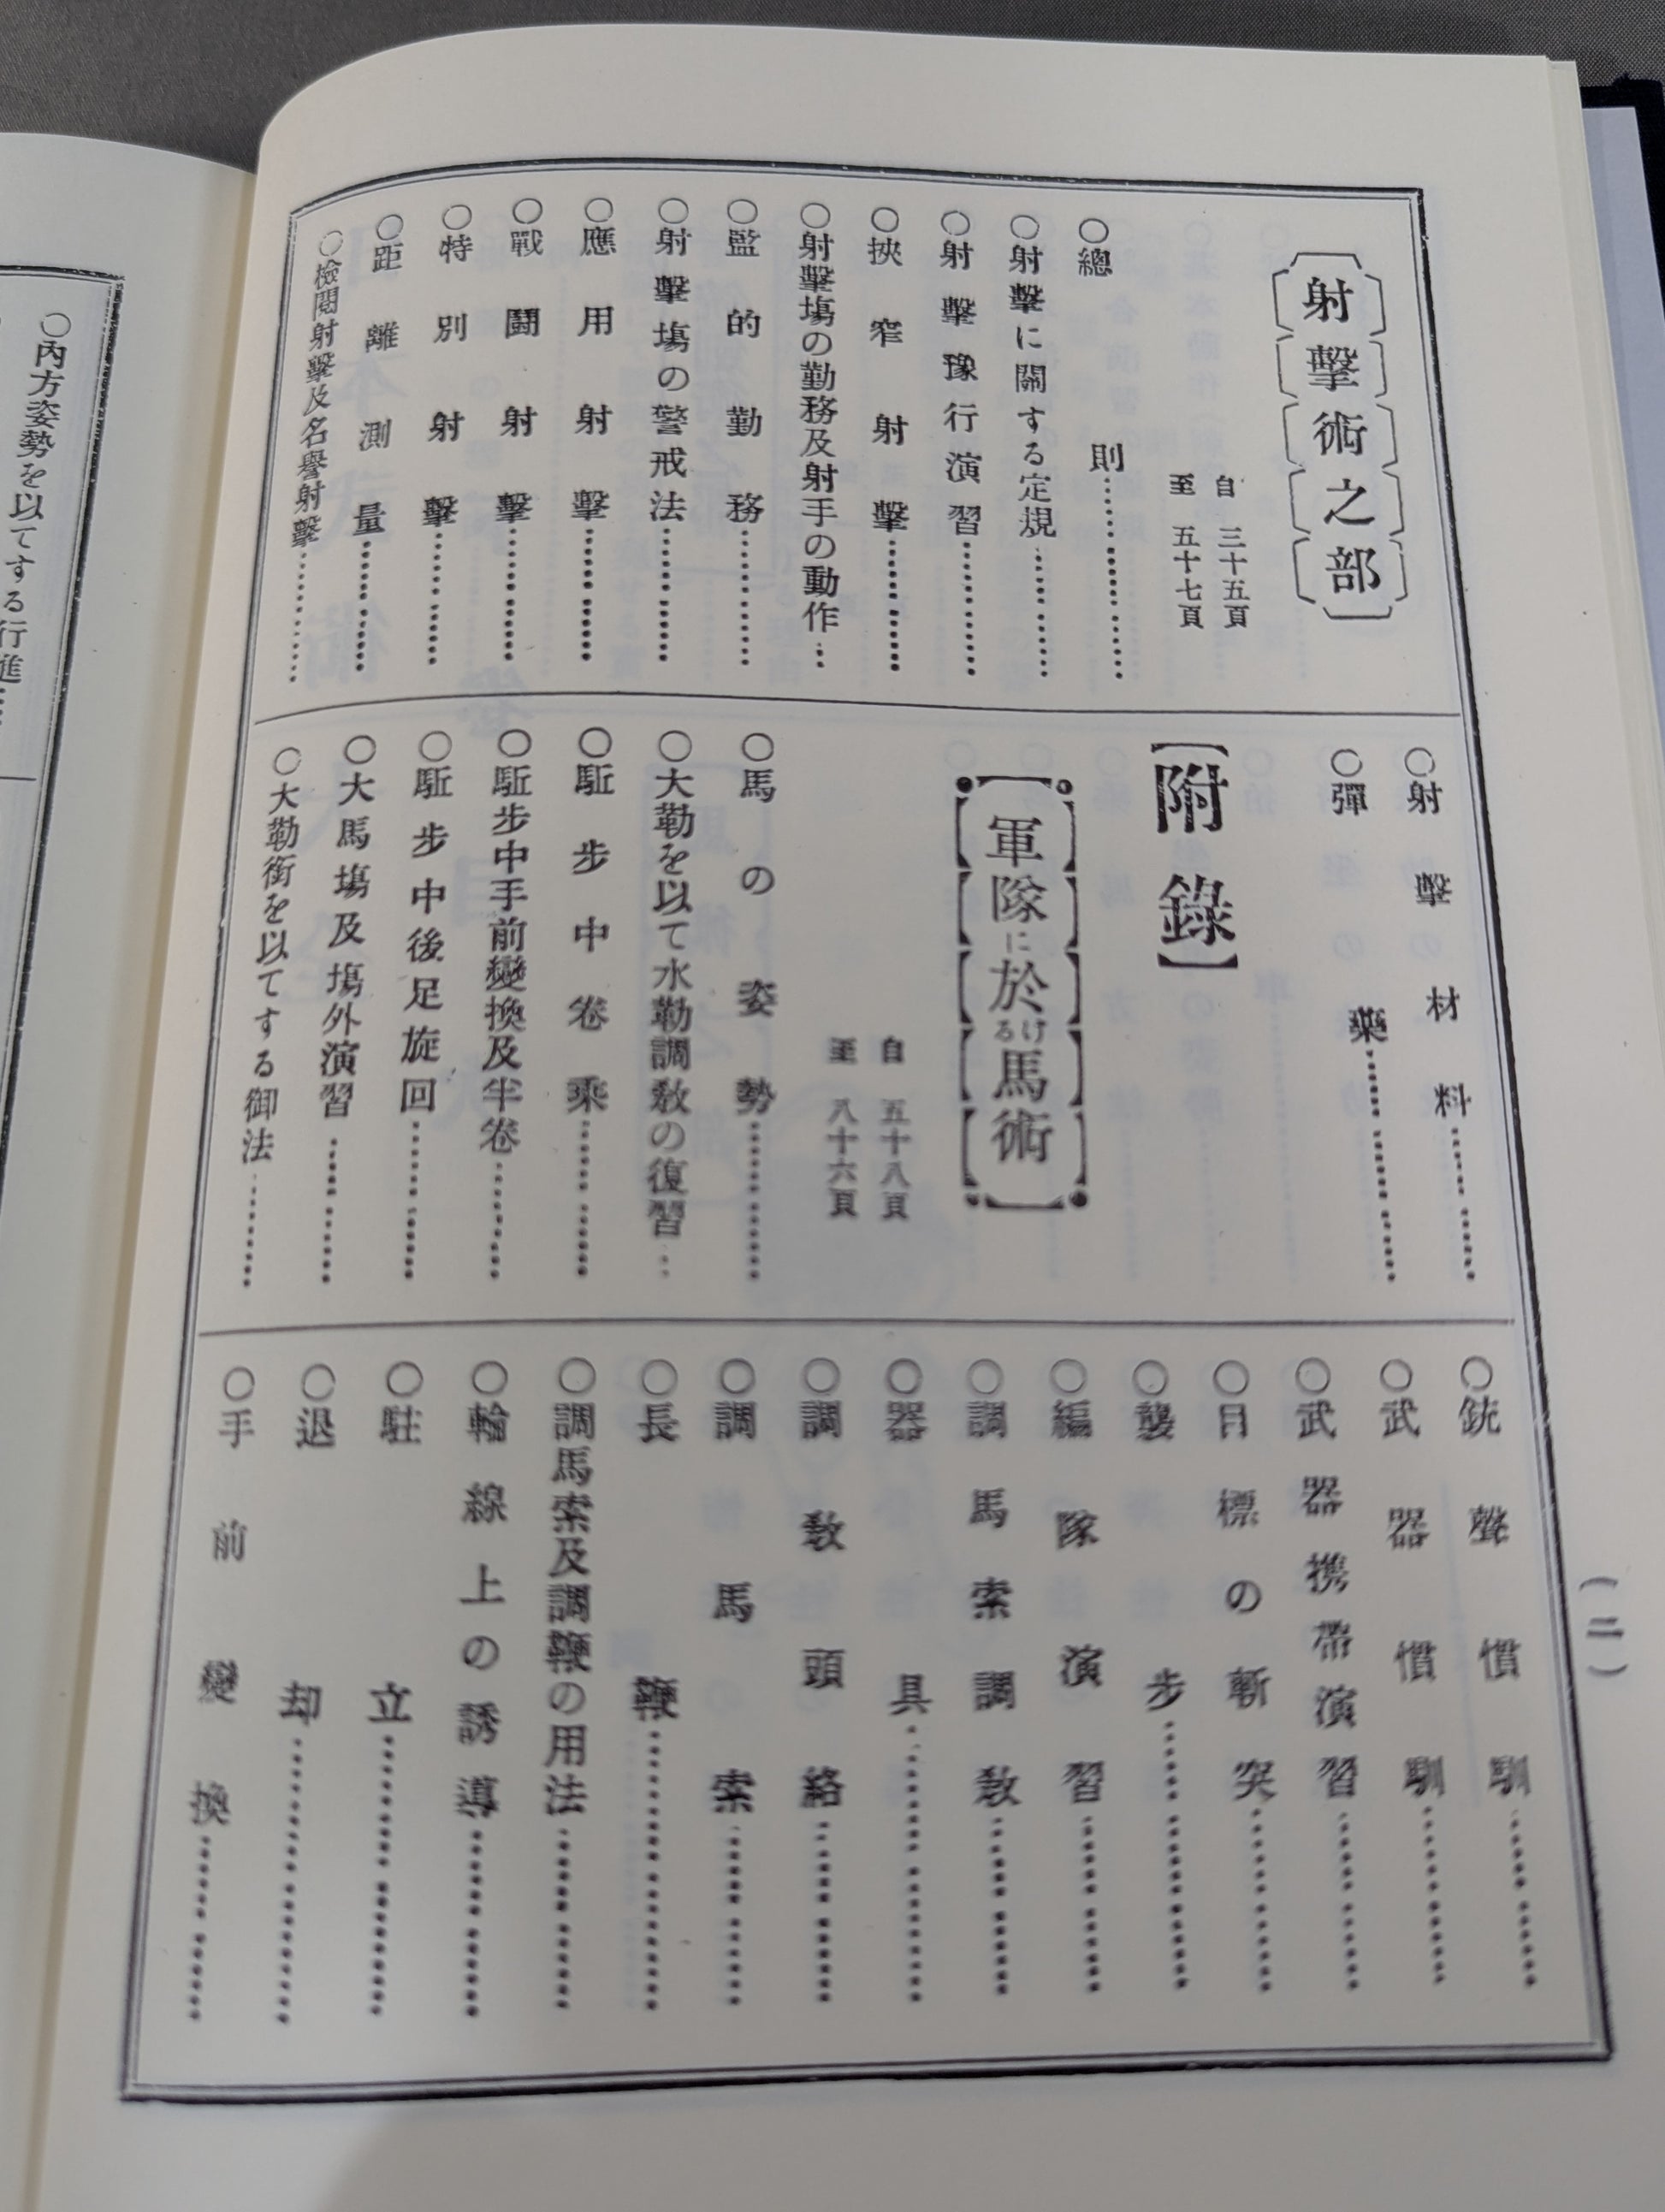 射擊術之部
自 三十五頁
至 五十七頁
○總則
○射擊に關する定規
○射擊豫行演習
○挾窄射擊
○射擊塲の勤務及射手の動作
○監的勤務
○射擊塲の警戒法
○應用射擊
○戰鬪射擊
○特別射擊
○距離測量
○檢閱射擊及名譽射擊
○射擊材料
○彈藥
【附錄】
軍隊に於ける馬術
自 五十八頁
至 八十六頁
○馬の姿勢
○大勒を以て水勒調敎の復習
○駈步中卷乘
○駈步中手前變換及半卷
○駈步中後足旋回
○大馬塲及塲外演習
○大勒銜を以てする御法
○銃聲慣馴
○武器慣馴
○武器携帶演習
○目標の斬突
○襲步
○編隊演習
○調馬索調敎
○器具
○調敎頭絡
○調馬索
○長鞭
○調馬索及調鞭の用法
○輪線上の誘導
○駐立
○退却
○手前變換
(二)
○內方姿勢を以てする行進